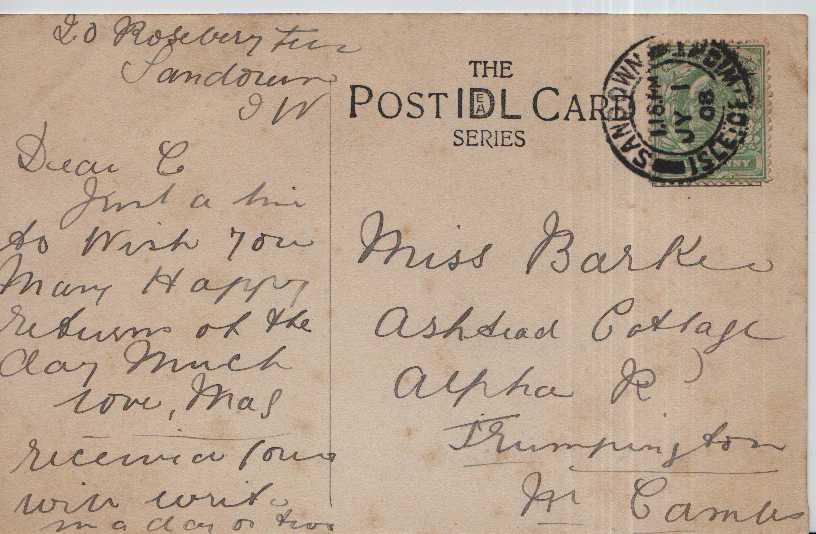 20 Rosebery Ter
Sandown
I W
Dear C
Just a line
to Wish You
Many Happy
returns of the
day Much
love, Mag
received yours
will write
in a day or two
THE
POST IDEAL CARD
SERIES
SANDOWN
ISLE OF WIGHT
11 15 AM
JY 1
08
NNY
Miss Barker
Ashtead Cottage
Alpha R
Trumpington
Nr Cambs